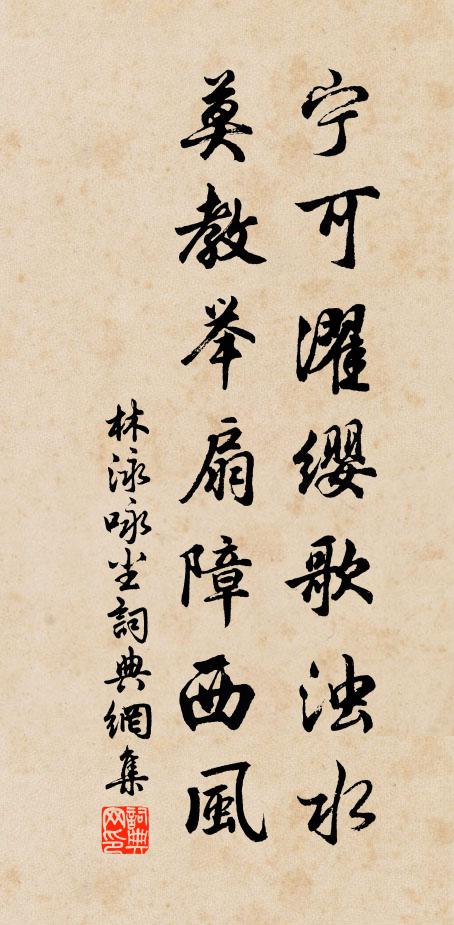 宁可濯缨歌浊水
莫教举扇障西風
林泳咏尘詞典網集
詞典网印